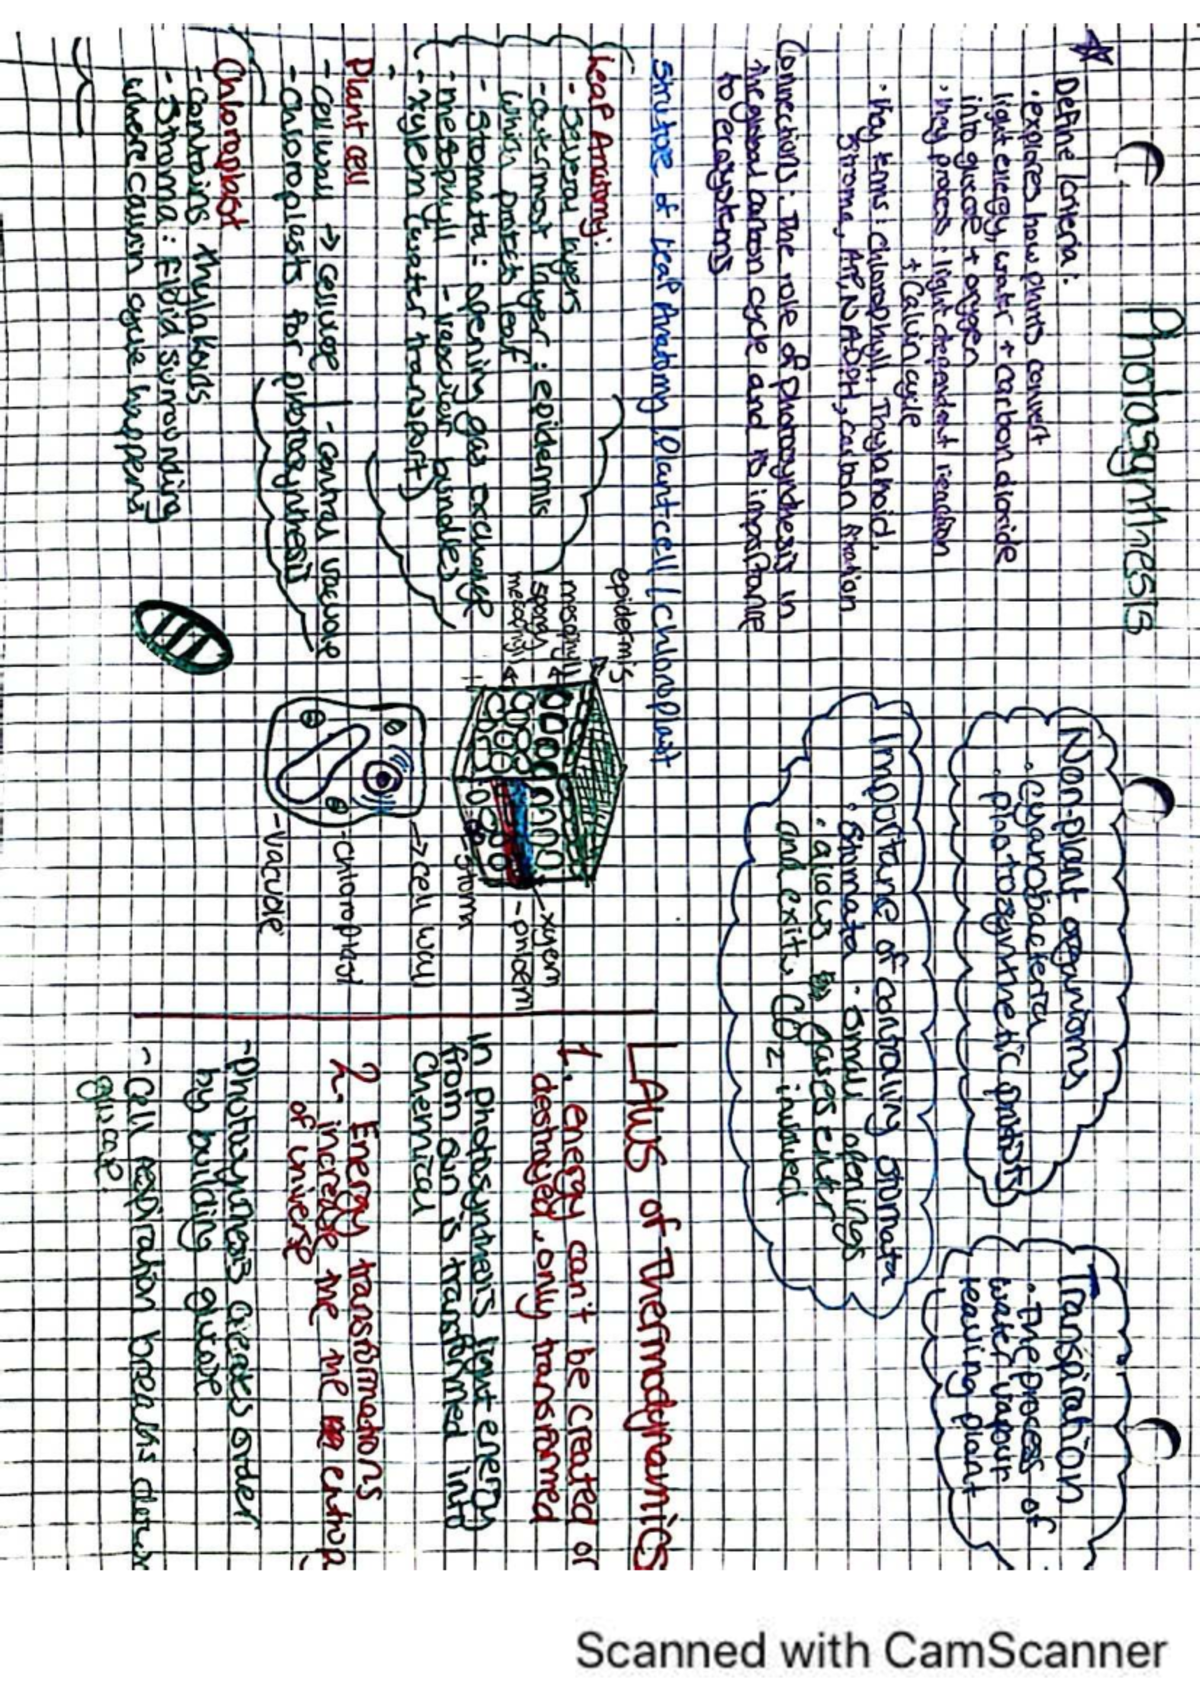 Photosynthesis
Define/criteria:
• explores how plants convert
light energy, water + carbon dioxide
into glucose + oxygen
• key process: light dependent reaction
+ Calvin cycle
• Key terms: chlorophyll, Thylakoid,
Stroma, ATP, NADPH, carbon fixation
Connections: The role of photosynthesis in
the global carbon cycle and is importante
to ecosystems
Non-plant organisms
• cyanobacteria
• photosynthetic protists
Transpiration
• The process of
water vapour
leaving plant
Importance of controlling stomata
• Stomata - small openings
• allows gases enter
and exit, CO2 involved
Strutoe of Leaf Anatomy/Plant cell/Chloroplast
Leaf Anatomy:
- Several layers
- outermost layer: epidermis
which protects leaf
- Stomata: opening gas exchange
- mesophyll - vascular bundles
- xylem (water transport)
Plant cell
- cell wall → cellulose - central vacuole
- Chloroplasts for photosynthesis
Chloroplast
- contains thylakoids
- Stroma: Fluid surrounding
where calvin cycle happens
epidermis
mesophyll
spongy
mesophyll
xylem
- phloem
stoma
→ cell wall
- chloroplast
- vacuole
Laws of Thermodynamics
1. energy can't be created or
destroyed, only transformed
In photosynthesis light energy
from sun is transformed into
Chemical
2. Energy transformations
increase the the entrop
of universe
- Photosynthesis creates order
by building glucose
- Cell respiration breaks down
glucose.
Scanned with CamScanner